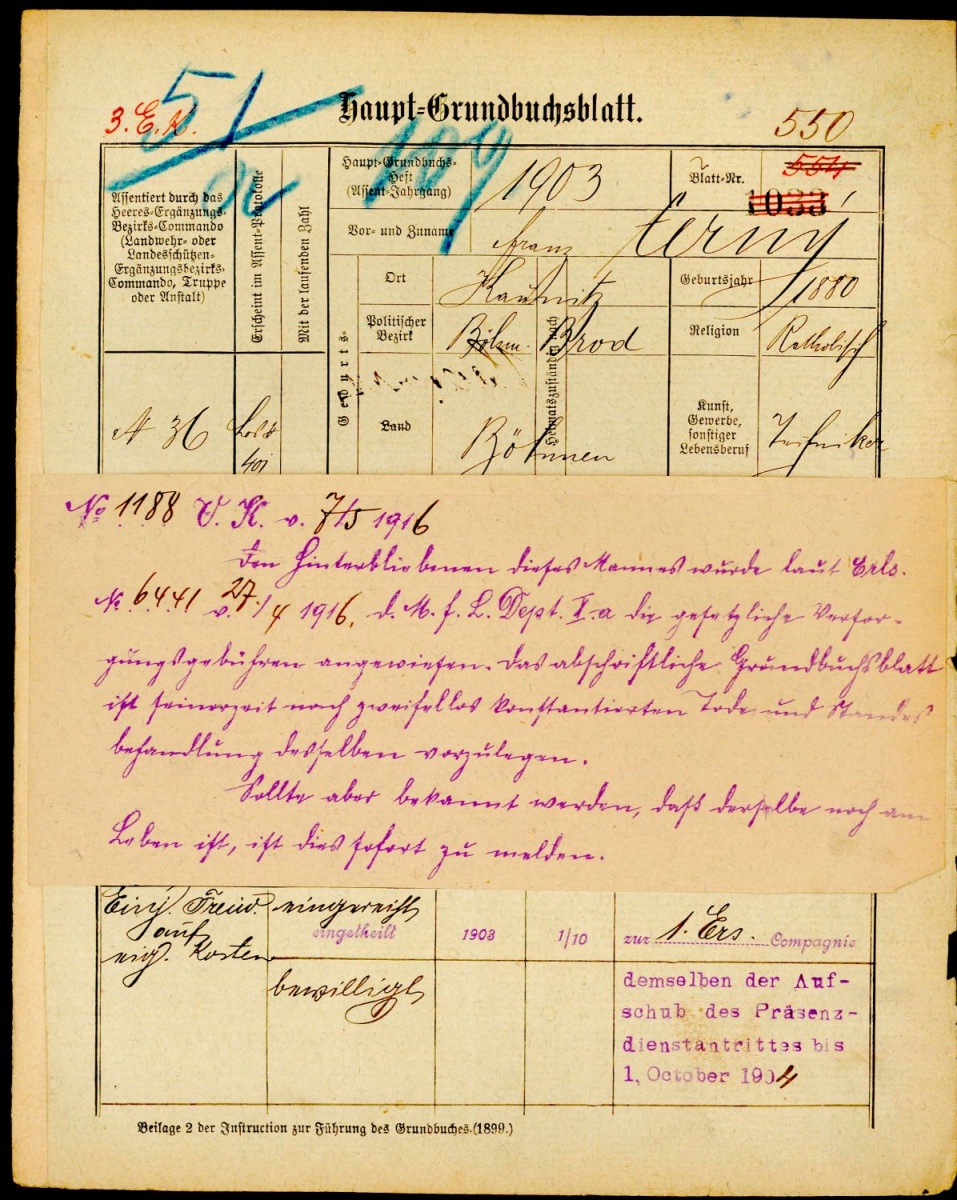 3. E. K.
51
a
189
Haupt-Grundbuchsblatt.
550
Assentiert durch das
Heeres-Ergänzungs-
Bezirks-Commando
(Landwehr- oder
Landesschützen-
Ergänzungsbezirks-
Commando, Truppe
oder Anstalt)
Erscheint im Assent-Protokolle
Mit der laufenden Zahl
Haupt-Grundbuchs-
Heft
(Assent-Jahrgang)
1903
Blatt-Nr.
554
1033
Vor- und Zuname
Franz Černý
Geburts-
Ort
Kaunitz
Geburtsjahr
1880
Politischer
Bezirk
Böhm. Brod
Heimatszuständig nach
Religion
Katholisch
Land
Böhmen
Kunst,
Gewerbe,
sonstiger
Lebensberuf
Techniker
N 36
Los 8
401
No 1188 V. K. v. 7/5 1916
Den Hinterbliebenen dieses Mannes wurde laut Erls.
No. 6441 v. 27./4 1916, d. M. f. L. Dept. X.a die gesetzliche Versor-
gungsgebühren angewiesen. Das abschriftliche Grundbuchsblatt
ist seinerzeit nach zweifellos konstantierten Tode und Standes
behandlung desselben vorzulegen.
Sollte aber bekannt werden, daß derselbe noch am
Leben ist, ist dies sofort zu melden.
Einj. Freiw.
auf
eig. Kosten
eingereiht
eingetheilt
1903
1/10
zur 1. Ers. Compagnie
bewilligt
demselben der Auf-
schub des Präsenz-
dienstantrittes bis
1. October 1904
Beilage 2 der Instruction zur Führung des Grundbuches.(1899.)